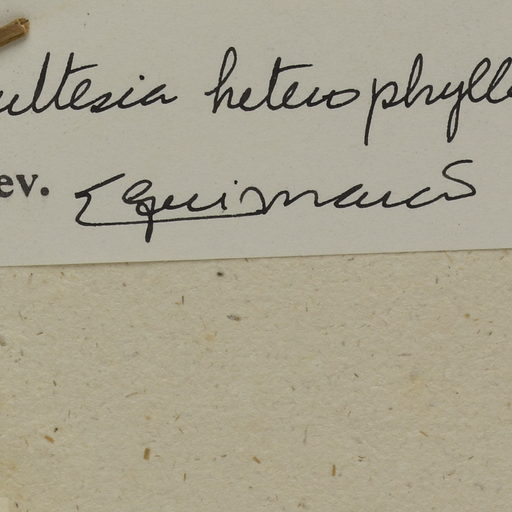 ultesia heterophyll
ev. E Guimarães